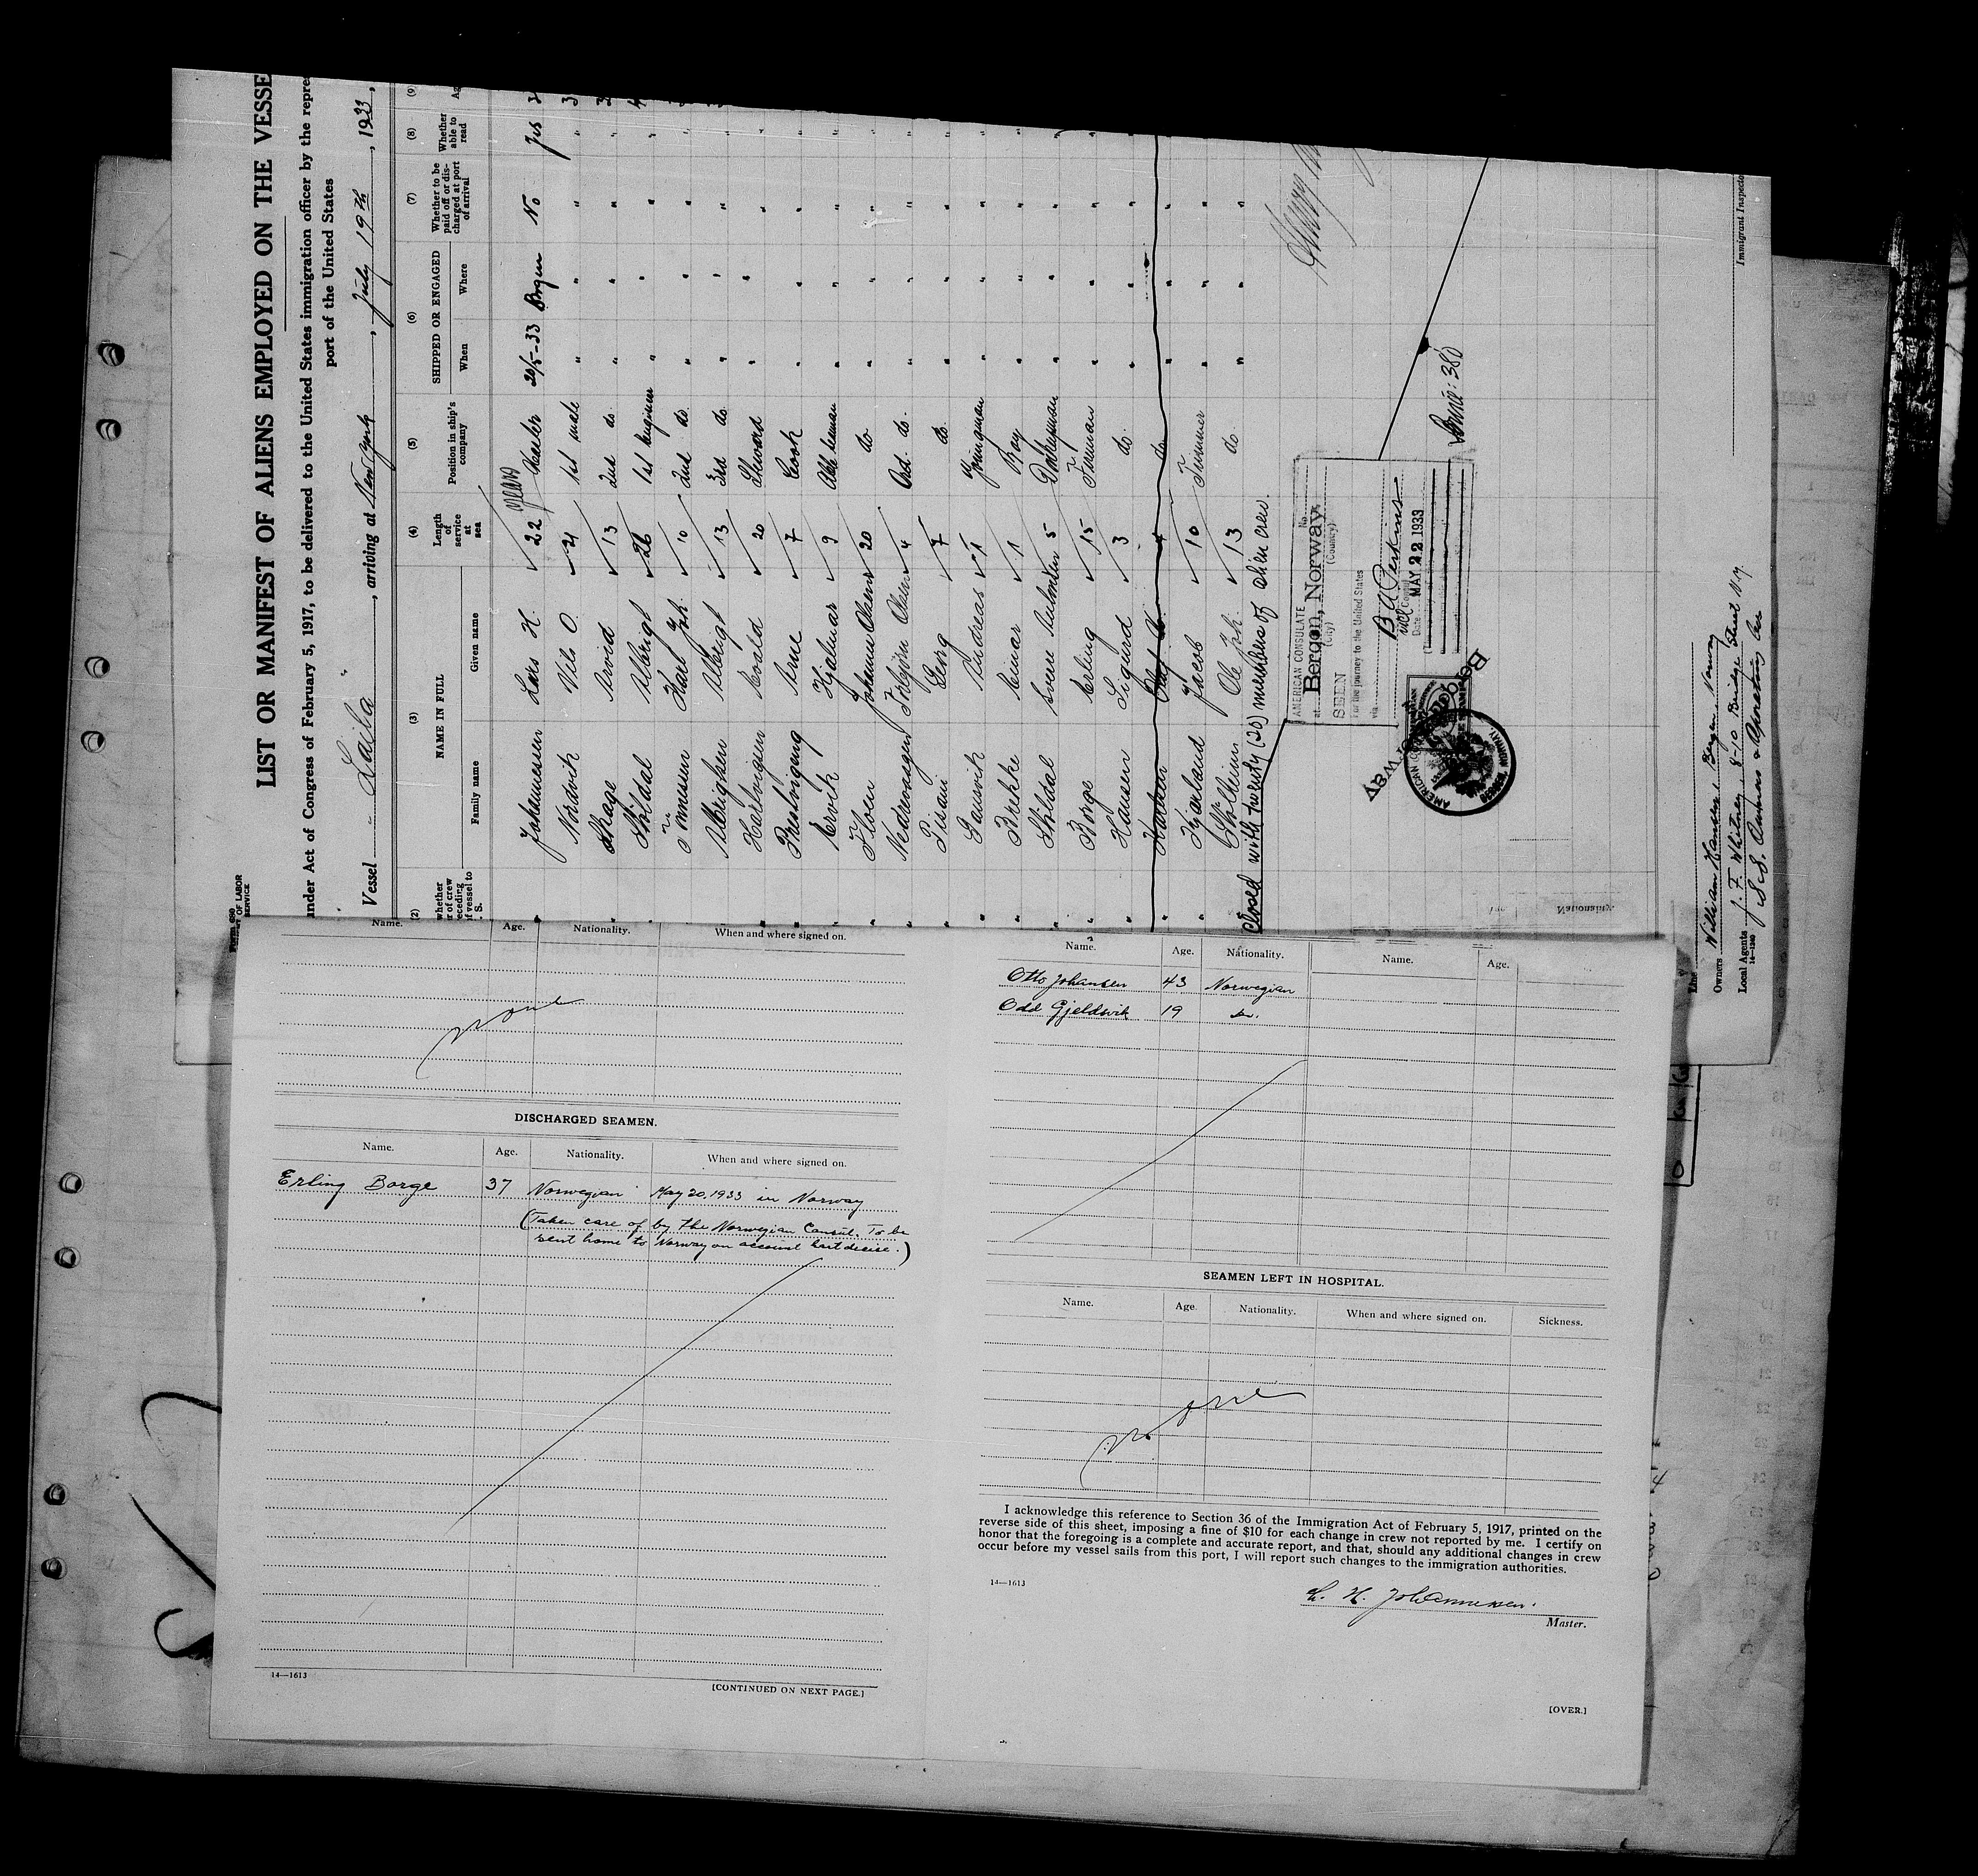 LIST OR MANIFEST OF ALIENS EMPLOYED ON THE VESSE
under Act of Congress of February 5, 1917, to be delivered to the United States immigration officer by the repre
port of the United States
Vessel Laila, arriving at New York, July 19th, 1933,
(2) (3) (4) (5) (6) (7) (8) (9)
whether
r of crew
eceding
f vessel to
. S.
NAME IN FULL
Family name Given name
Length of service at sea
Position in ship's company
SHIPPED OR ENGAGED
When Where
Whether to be paid off or dis-charged at port of arrival
Whether able to read
Ag
years
Johannessen Lars H. 22 20/5-33 No Yes
Nordvik Nils O. 21 1st mate " " " "
Skage Arvid 13 2nd do. " " " "
Sköldal 26 1st Engineer " " " "
Tönnesen Karl Joh. 10 2nd do. " " " "
13 3rd do. " " " "
20 Steward " " " "
Arne 7 Cook " " " "
Ervik Hjalmar 9 Able seaman " " " "
Floen Johannes Olsen 20 do " " " "
Torbjörn Olsen 4 Ord. do. " " " "
Pisani Georg 7 do. " " " "
Gausvik Andreas 1 Youngman " " " "
Brekke Einar 1 Boy " " " "
Sköldal Sverre 5 Donkeyman " " " "
Borge Erling 15 Fireman " " " "
Hansen Sigurd 3 do. " " " "
4 do. " " "
Kjærland Jacob 10 Trimmer " " " "
Ole Joh. 13 do " " " "
Closed with twenty (20) members of alien crew.
AMERICAN CONSULATE
at Bergen, Norway. No.
(City) (Country)
SEEN
For the journey to the United States
via
Vice Consul
Date MAY 22 1933
Immigrant Inspecto
Owners William Hansen, Bergen, Norway
Local Agents J. F. Whitney, 8-10 Bridge Street N.Y.
14—1240
Name. Age. Nationality. When and where signed on.
None
DISCHARGED SEAMEN.
Name. Age. Nationality. When and where signed on.
Erling Borge 37 Norwegian May 20, 1933 in Norway
(Taken care of by the Norwegian Consul. To be
sent home to Norway on account hart decise.)
14—1613
[CONTINUED ON NEXT PAGE.]
Name. Age. Nationality. Name. Age.
Otto Johansen 43 Norwegian
Odd Gjeldsvik 19 do.
SEAMEN LEFT IN HOSPITAL.
Name. Age. Nationality. When and where signed on. Sickness.
None
I acknowledge this reference to Section 36 of the Immigration Act of February 5, 1917, printed on the
reverse side of this sheet, imposing a fine of $10 for each change in crew not reported by me. I certify on
honor that the foregoing is a complete and accurate report, and that, should any additional changes in crew
occur before my vessel sails from this port, I will report such changes to the immigration authorities.
14—1613
L. H. Johannessen.
Master.
[OVER.]